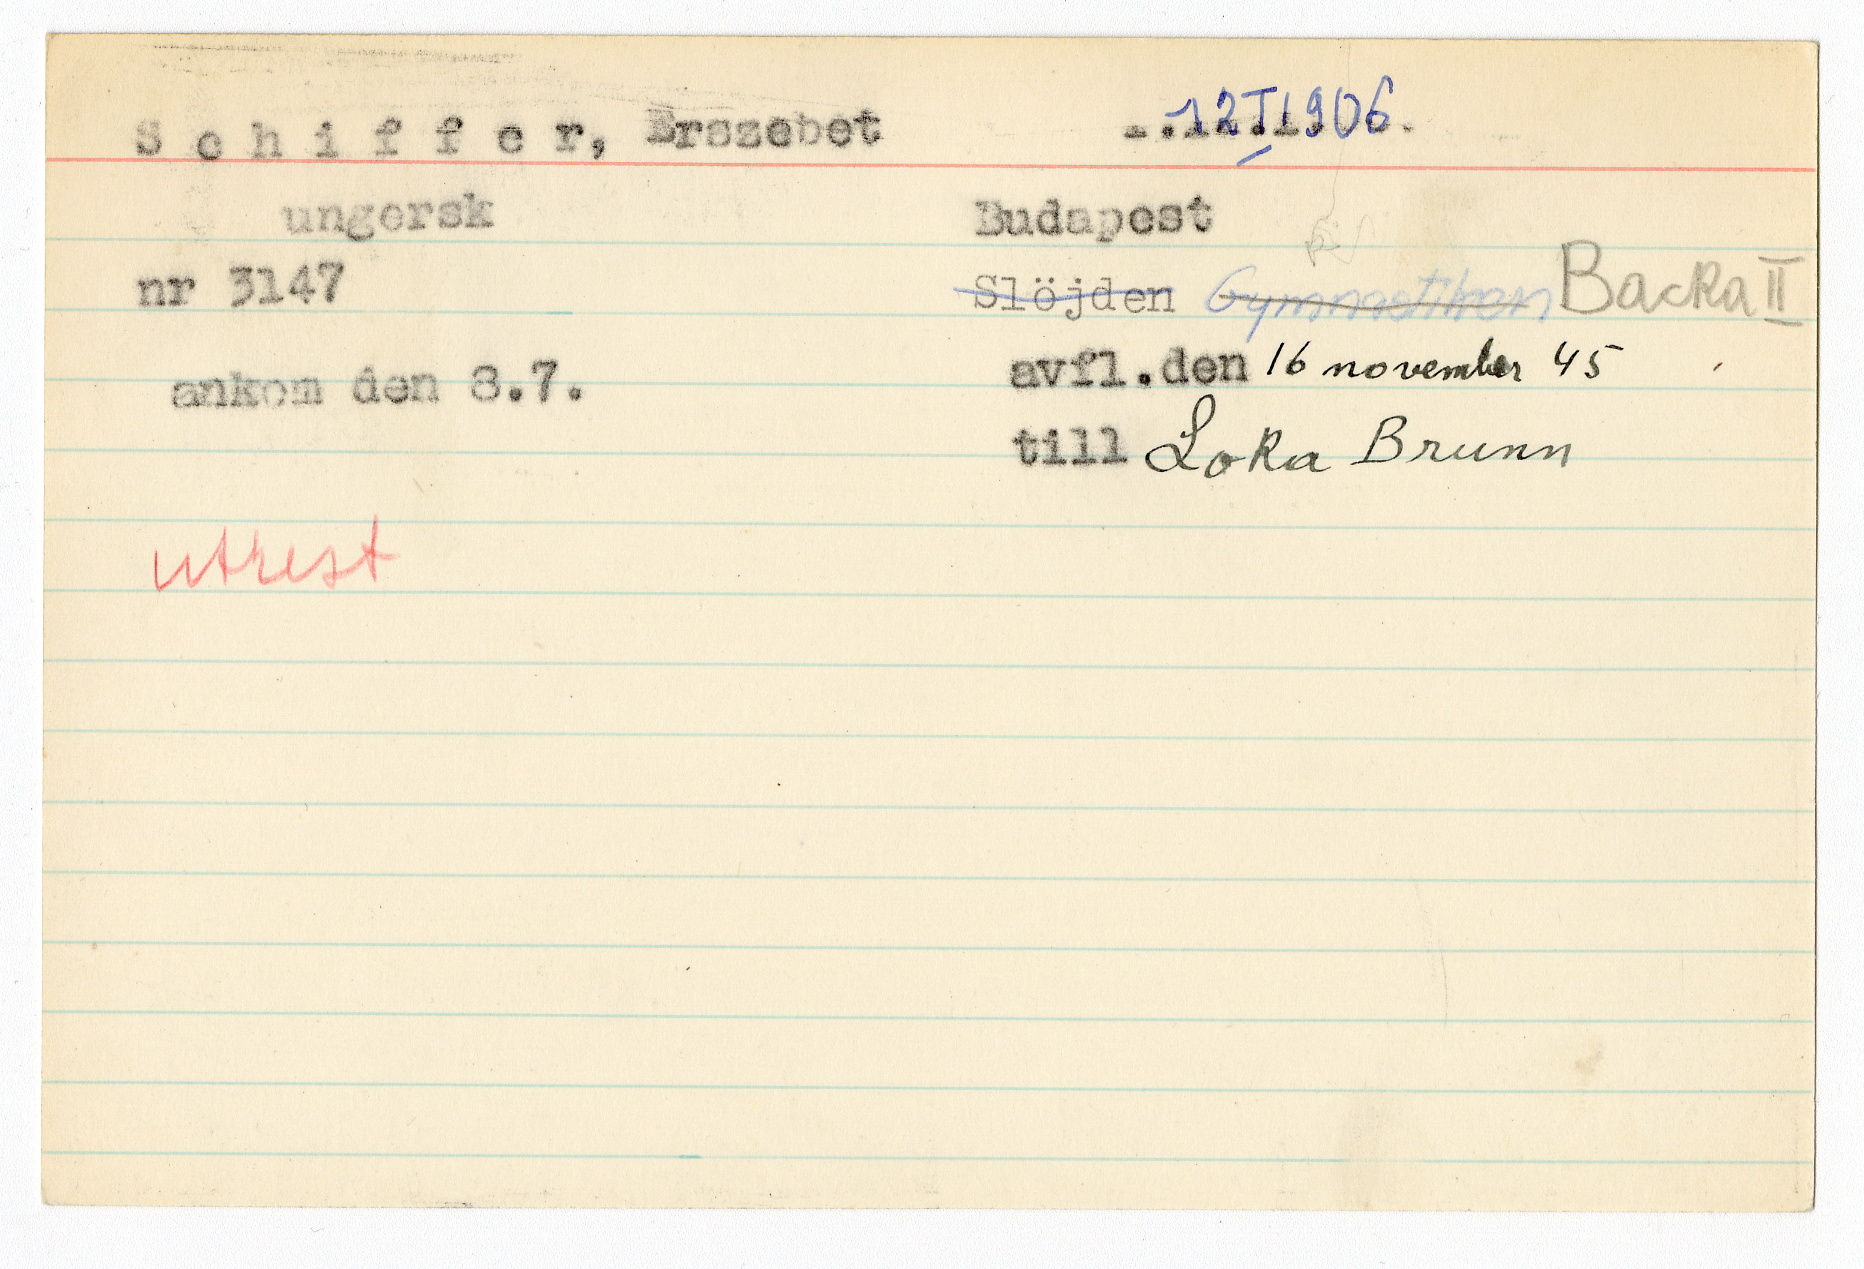 S c h i f f e r, Erszebet 12 I 1906.
ungersk Budapest
nr 3147 Slöjden Gymnastiken Backa II
ankom den 8.7. avfl.den 16 november 45
till Loka Brunn
utrest